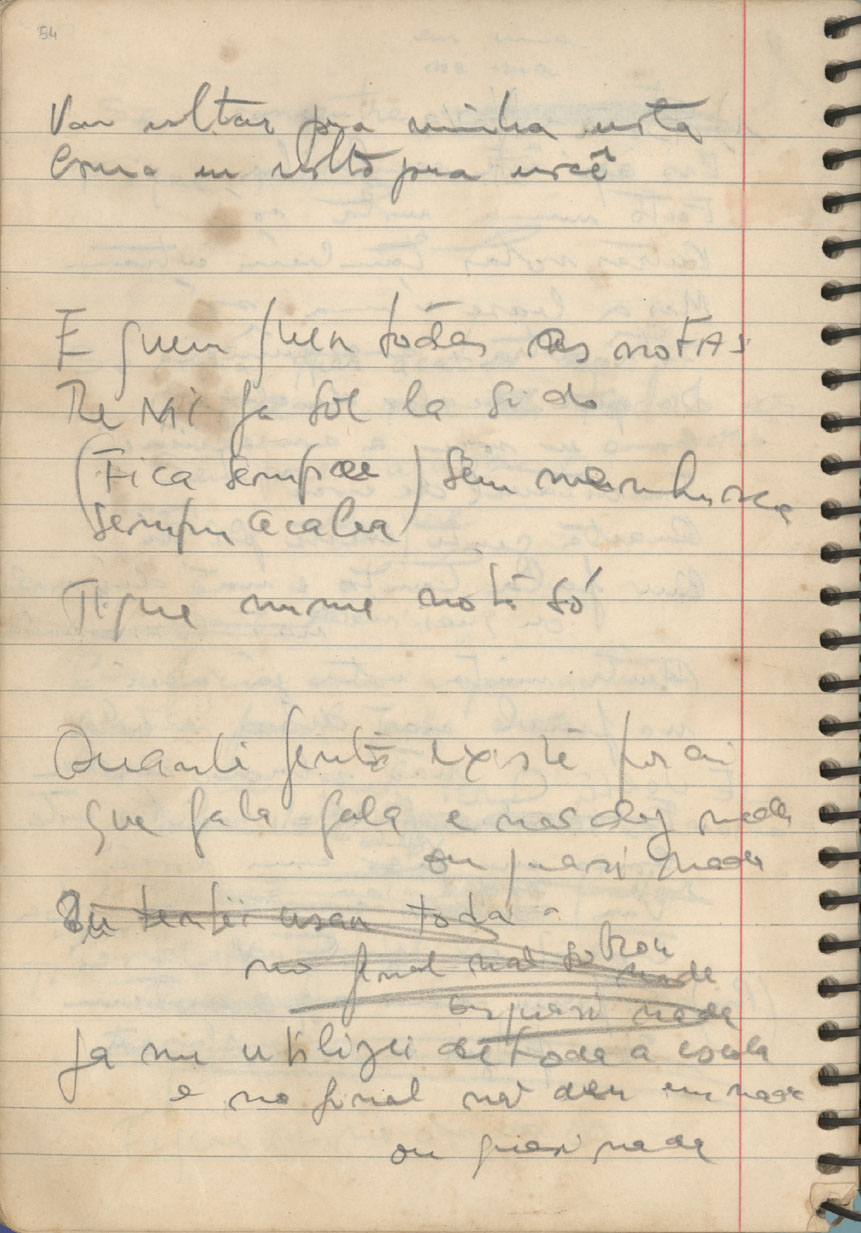 54
Vou voltar pra minha nota
Como eu volto pra você
E quem quer todas as notas
Re Mi fa Sol la Si do
(Fica sempre) sem nenhuma
Sempre acaba
Fique numa nota só
Quanta gente existe por aí
que fala fala e não diz nada
ou quasi nada
Eu tentei usar toda a
no final não sobrou nada
ou quasi nada
Ja me utilizei de toda a escala
e no final não deu em nada
ou quasi nada